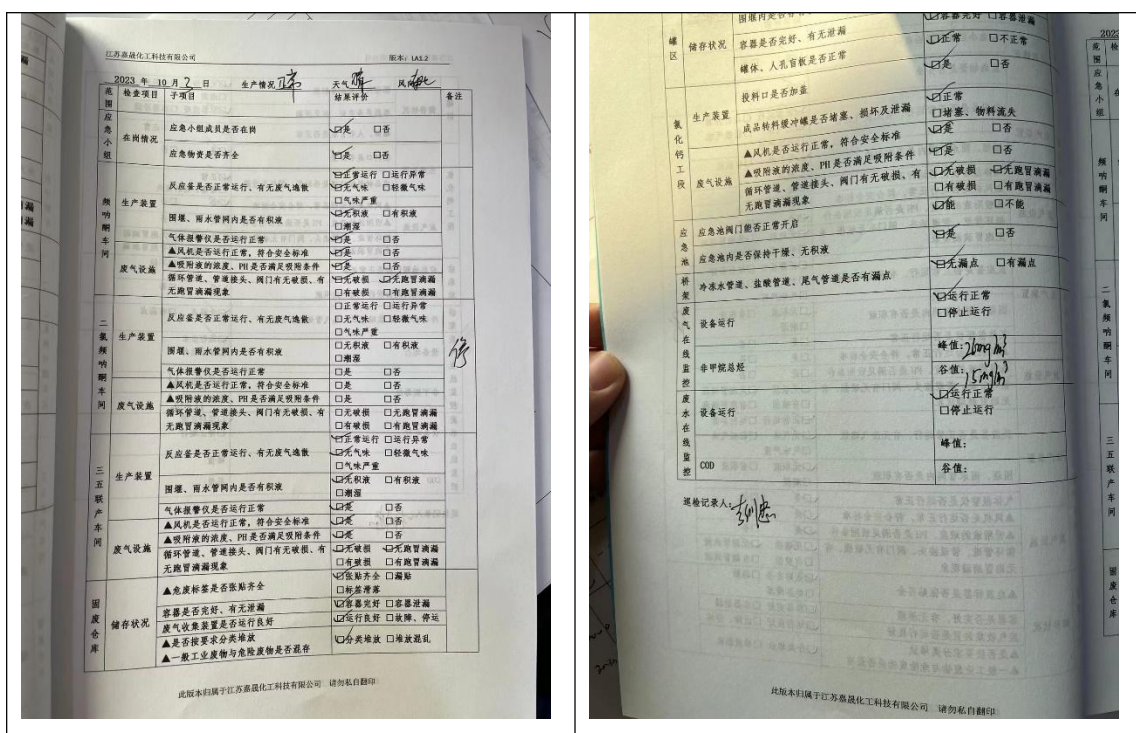 江苏嘉晟化工科技有限公司 版本:LA1.2
2023 年 10 月 3 日 生产情况 正常 天气 晴 风向
范围 检查项目 子项目 结果评价 备注
应急小组 在岗情况 应急小组成员是否在岗 ☑是 □否
应急物资是否齐全 ☑是 □否
频呐酮车间 生产装置 反应釜是否正常运行、有无废气逸散 ☑正常运行 □运行异常
☑无气味 □轻微气味
□气味严重
围堰、雨水管网内是否有积液 ☑无积液 □有积液
□潮湿
气体报警仪是否运行正常 ☑是 □否
废气设施 ▲风机是否运行正常,符合安全标准 ☑是 □否
▲吸附液的浓度、PH是否满足吸附条件 ☑是 □否
循环管道、管道接头、阀门有无破损、有 ☑无破损 ☑无跑冒滴漏
无跑冒滴漏现象 □有破损 □有跑冒滴漏
二氯频呐酮车间 生产装置 反应釜是否正常运行、有无废气逸散 □正常运行 □运行异常
□无气味 □轻微气味
□气味严重
围堰、雨水管网内是否有积液 □无积液 □有积液 停
□潮湿
气体报警仪是否运行正常 □是 □否
废气设施 ▲风机是否运行正常,符合安全标准 □是 □否
▲吸附液的浓度、PH是否满足吸附条件 □是 □否
循环管道、管道接头、阀门有无破损、有 □无破损 □无跑冒滴漏
无跑冒滴漏现象 □有破损 □有跑冒滴漏
三五联产车间 生产装置 反应釜是否正常运行、有无废气逸散 ☑正常运行 □运行异常
☑无气味 □轻微气味
□气味严重
围堰、雨水管网内是否有积液 ☑无积液 □有积液
□潮湿
气体报警仪是否运行正常 ☑是 □否
废气设施 ▲风机是否运行正常,符合安全标准 ☑是 □否
▲吸附液的浓度、PH是否满足吸附条件 ☑是 □否
循环管道、管道接头、阀门有无破损、有 ☑无破损 ☑无跑冒滴漏
无跑冒滴漏现象 □有破损 □有跑冒滴漏
固废仓库 储存状况 ▲危废标签是否张贴齐全 ☑张贴齐全 □漏贴
□标签滑落
容器是否完好、有无泄漏 ☑容器完好 □容器泄漏
废气收集装置是否运行良好 ☑运行良好 □故障、停运
▲是否按要求分类堆放 ☑分类堆放 □堆放混乱
▲一般工业废物与危险废物是否混存
此版本归属于江苏嘉晟化工科技有限公司 请勿私自翻印
罐区 储存状况 围堰内是否
容器是否完好、有无泄漏 ☑容器完好 □容器泄漏
罐体、人孔盲板是否正常 ☑正常 □不正常
氯化钙工段 生产装置 投料口是否加盖 ☑是 □否
成品转料缓冲罐是否堵塞、损坏及泄漏 ☑正常
□堵塞、物料流失
废气设施 ▲风机是否运行正常,符合安全标准 ☑是 □否
▲吸附液的浓度、PH是否满足吸附条件 ☑是 □否
循环管道、管道接头、阀门有无破损、有 ☑无破损 ☑无跑冒滴漏
无跑冒滴漏现象 □有破损 □有跑冒滴漏
应急池 应急池阀门能否正常开启 ☑能 □不能
应急池内是否保持干燥、无积液 ☑是 □否
桥架 冷冻水管道、盐酸管道、尾气管道是否有漏点 ☑无漏点 □有漏点
废气在线监控 设备运行 ☑运行正常
□停止运行
非甲烷总烃 峰值:26mg/m³
谷值:15mg/m³
废水在线监控 设备运行 ☑运行正常
□停止运行
COD 峰值:
谷值:
巡检记录人:
此版本归属于江苏嘉晟化工科技有限公司 请勿私自翻印